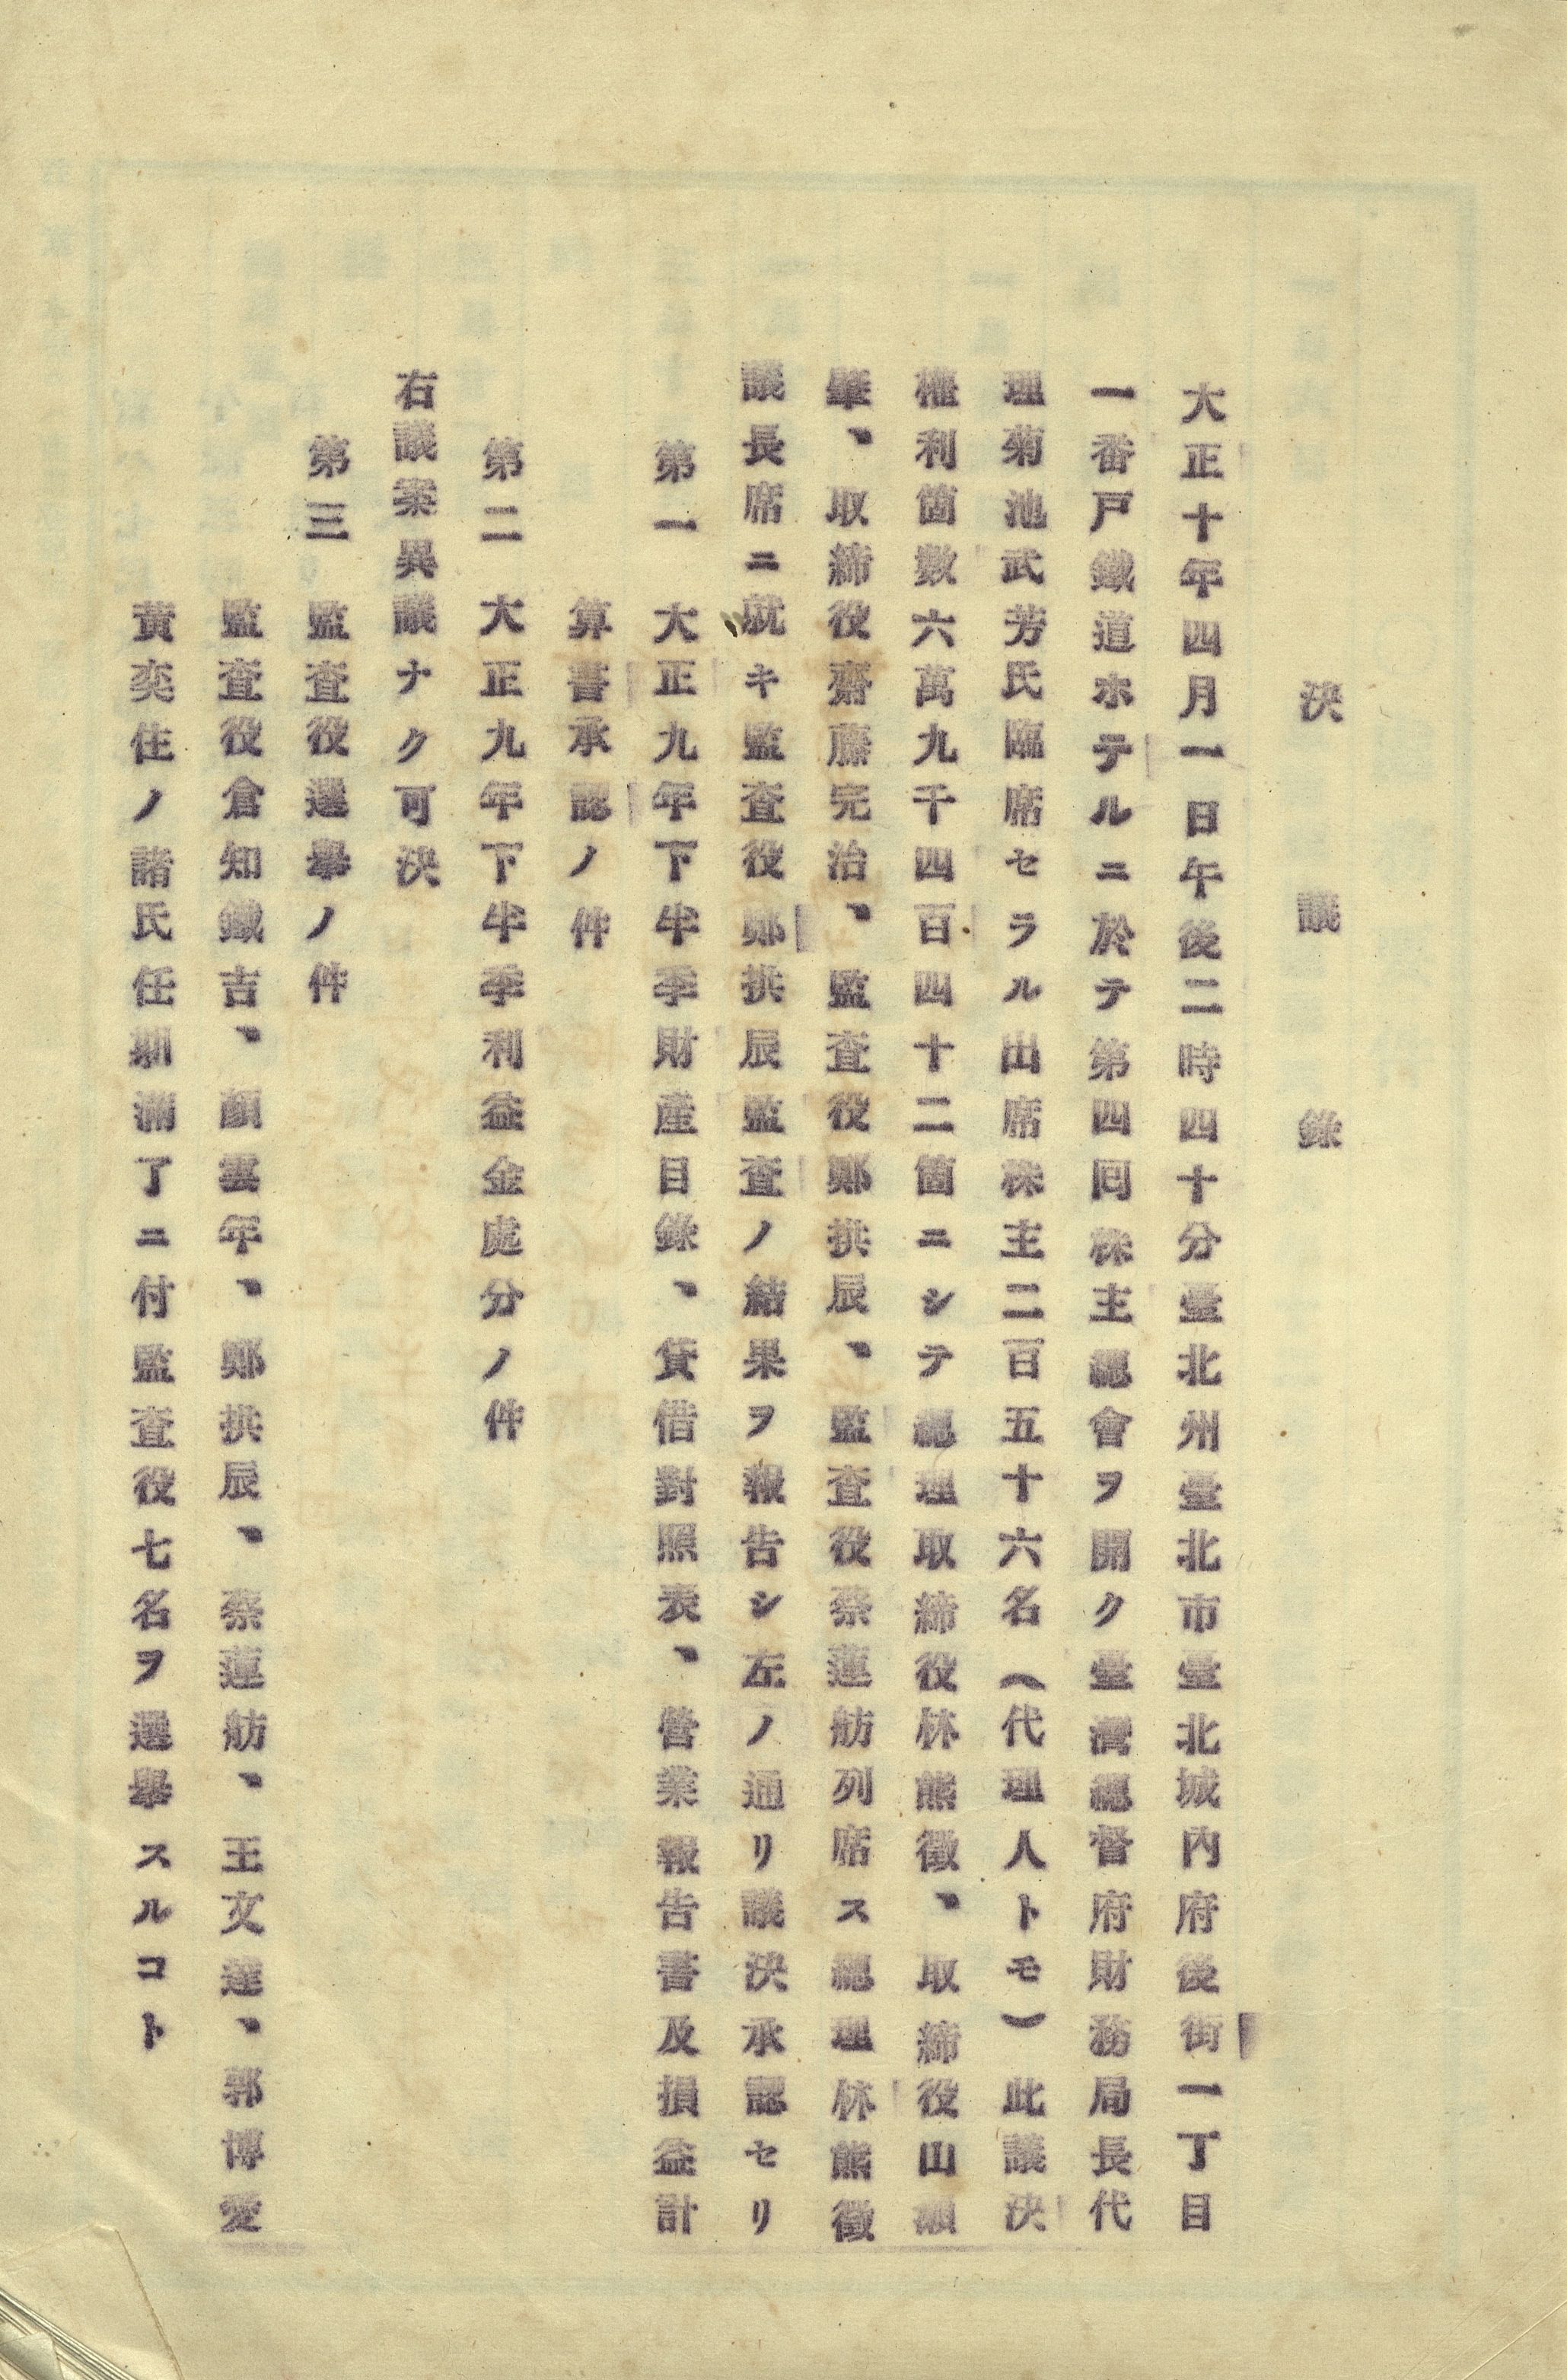 決議錄
大正十年四月一日午後二時四十分臺北州臺北市臺北城內府後街一丁目
一番戶鐵道ホテルニ於テ第四囘株主總會ヲ開ク臺灣總督府財務局長代
理菊池武芳氏臨席セラル出席株主二百五十六名(代理人トモ)此議決
權利箇數六萬九千四百四十二箇ニシテ總理取締役林熊徵、取締役山瀨
肇、取締役齋藤完治、監査役鄭拱辰、監査役蔡蓮舫列席ス總理林熊徵
議長席ニ就キ監査役鄭拱辰監査ノ結果ヲ報告シ左ノ通リ議決承認セリ
第一 大正九年下半季財產目錄、貸借對照表、營業報告書及損益計
算書承認ノ件
第二 大正九年下半季利益金處分ノ件
右議案異議ナク可決
第三 監査役選擧ノ件
監査役倉知鐵吉、顏雲年、鄭拱辰、蔡蓮舫、王文達、郭博愛
黃奕住ノ諸氏任期滿了ニ付監査役七名ヲ選擧スルコト